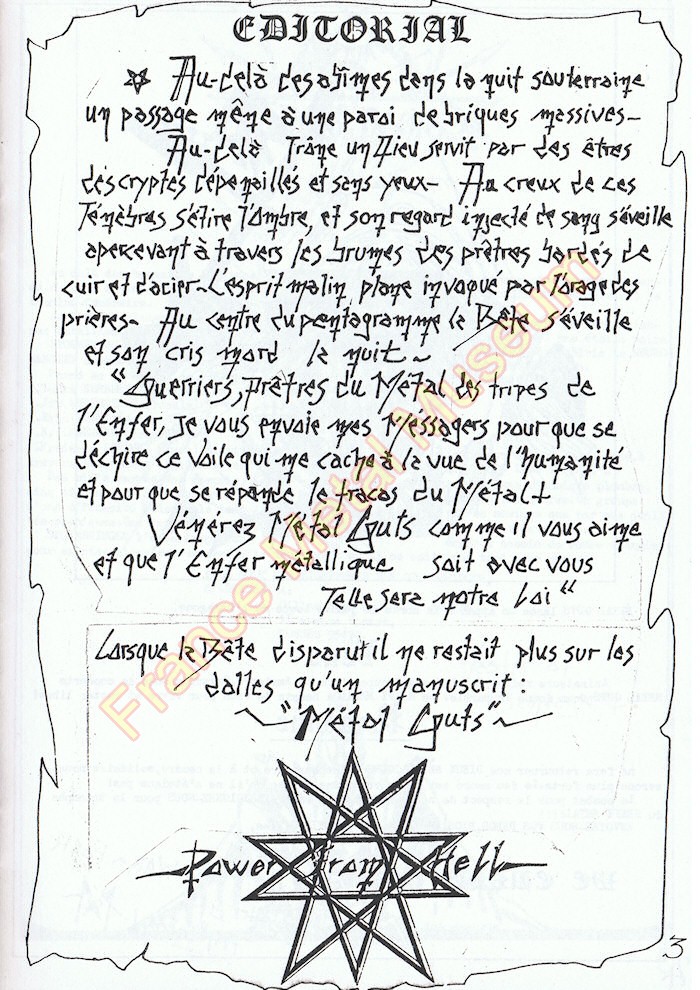 EDITORIAL
Au-delà des abîmes dans la nuit souterraine
un passage même à une paroi de briques massives-
Au-delà Trône un Dieu servit par des êtres
des cryptes dépenaillés et sans yeux- Au creux de ces
Ténèbres s'étire l'Ombre, et son regard injecté de sang s'éveille
apercevant à travers les brumes des prêtres bardés de
cuir et d'acier-L'esprit malin, plane invoqué par l'orage des
prières- Au centre du pentagramme la Bête s'éveille
et son cris mord la nuit-
"Guerriers, prêtres du Métal des tripes de
l'Enfer, je vous envoie mes Méssagers pour que se
déchire ce Voile qui me cache à la vue de l'humanité
et pour que se répande le fracas du Métal+
Vénérez Métal Guts comme il vous aime
et que l'Enfer métallique soit avec vous
Telle sera notre Loi"
Lorsque la Bête disparut il ne restait plus sur les
dalles qu'un manuscrit:
~"Métal Guts"~
-Power From Hell-
3
France Metal Museum